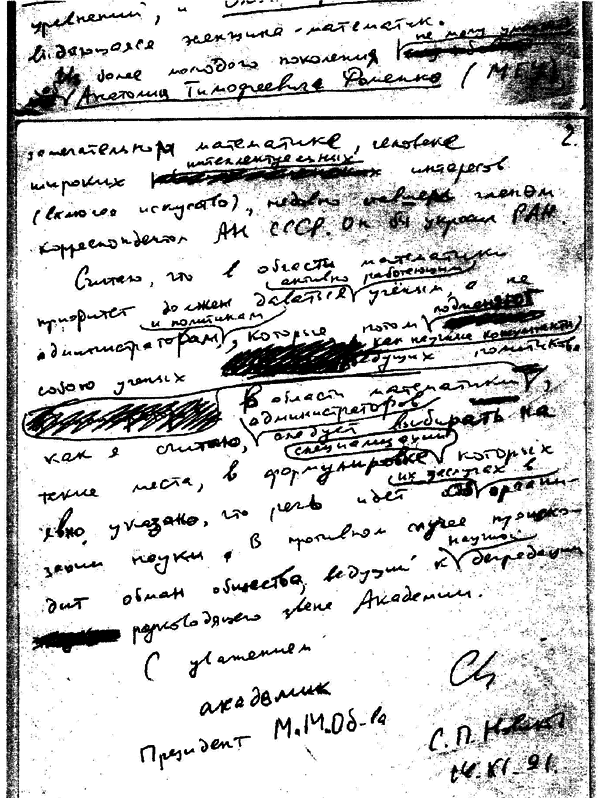 уравнений, и
выдающаяся женщина-математик.
Из более молодого поколения не могу
Анатолия Тимофеевича Фоменко (МГУ),
2.
замечательного математика, человека
интеллектуальных
широких интересов
(включая искусство), недавно ставшего членом
корреспондентом АН СССР. Он бы украсил РАН.
Считаю, что в области математики
активно работающим
приоритет должен даваться учёным, а не
и политикам
администраторам, которые потом подменяют
как научные консультанты
собою ученых ведущих политиков
В области математики,
администраторов
как я считаю, следует выбирать на
специализации
такие места, в формулировке которых
их заслугах в
явно указано, что речь идет об органи-
зации науки. В противном случае происхо-
научной
дит обман общества, ведущий к деградации
руководящего звена Академии.
С уважением
академик
Президент М.М.Об-ва
С.П. Новиков
XI-91.